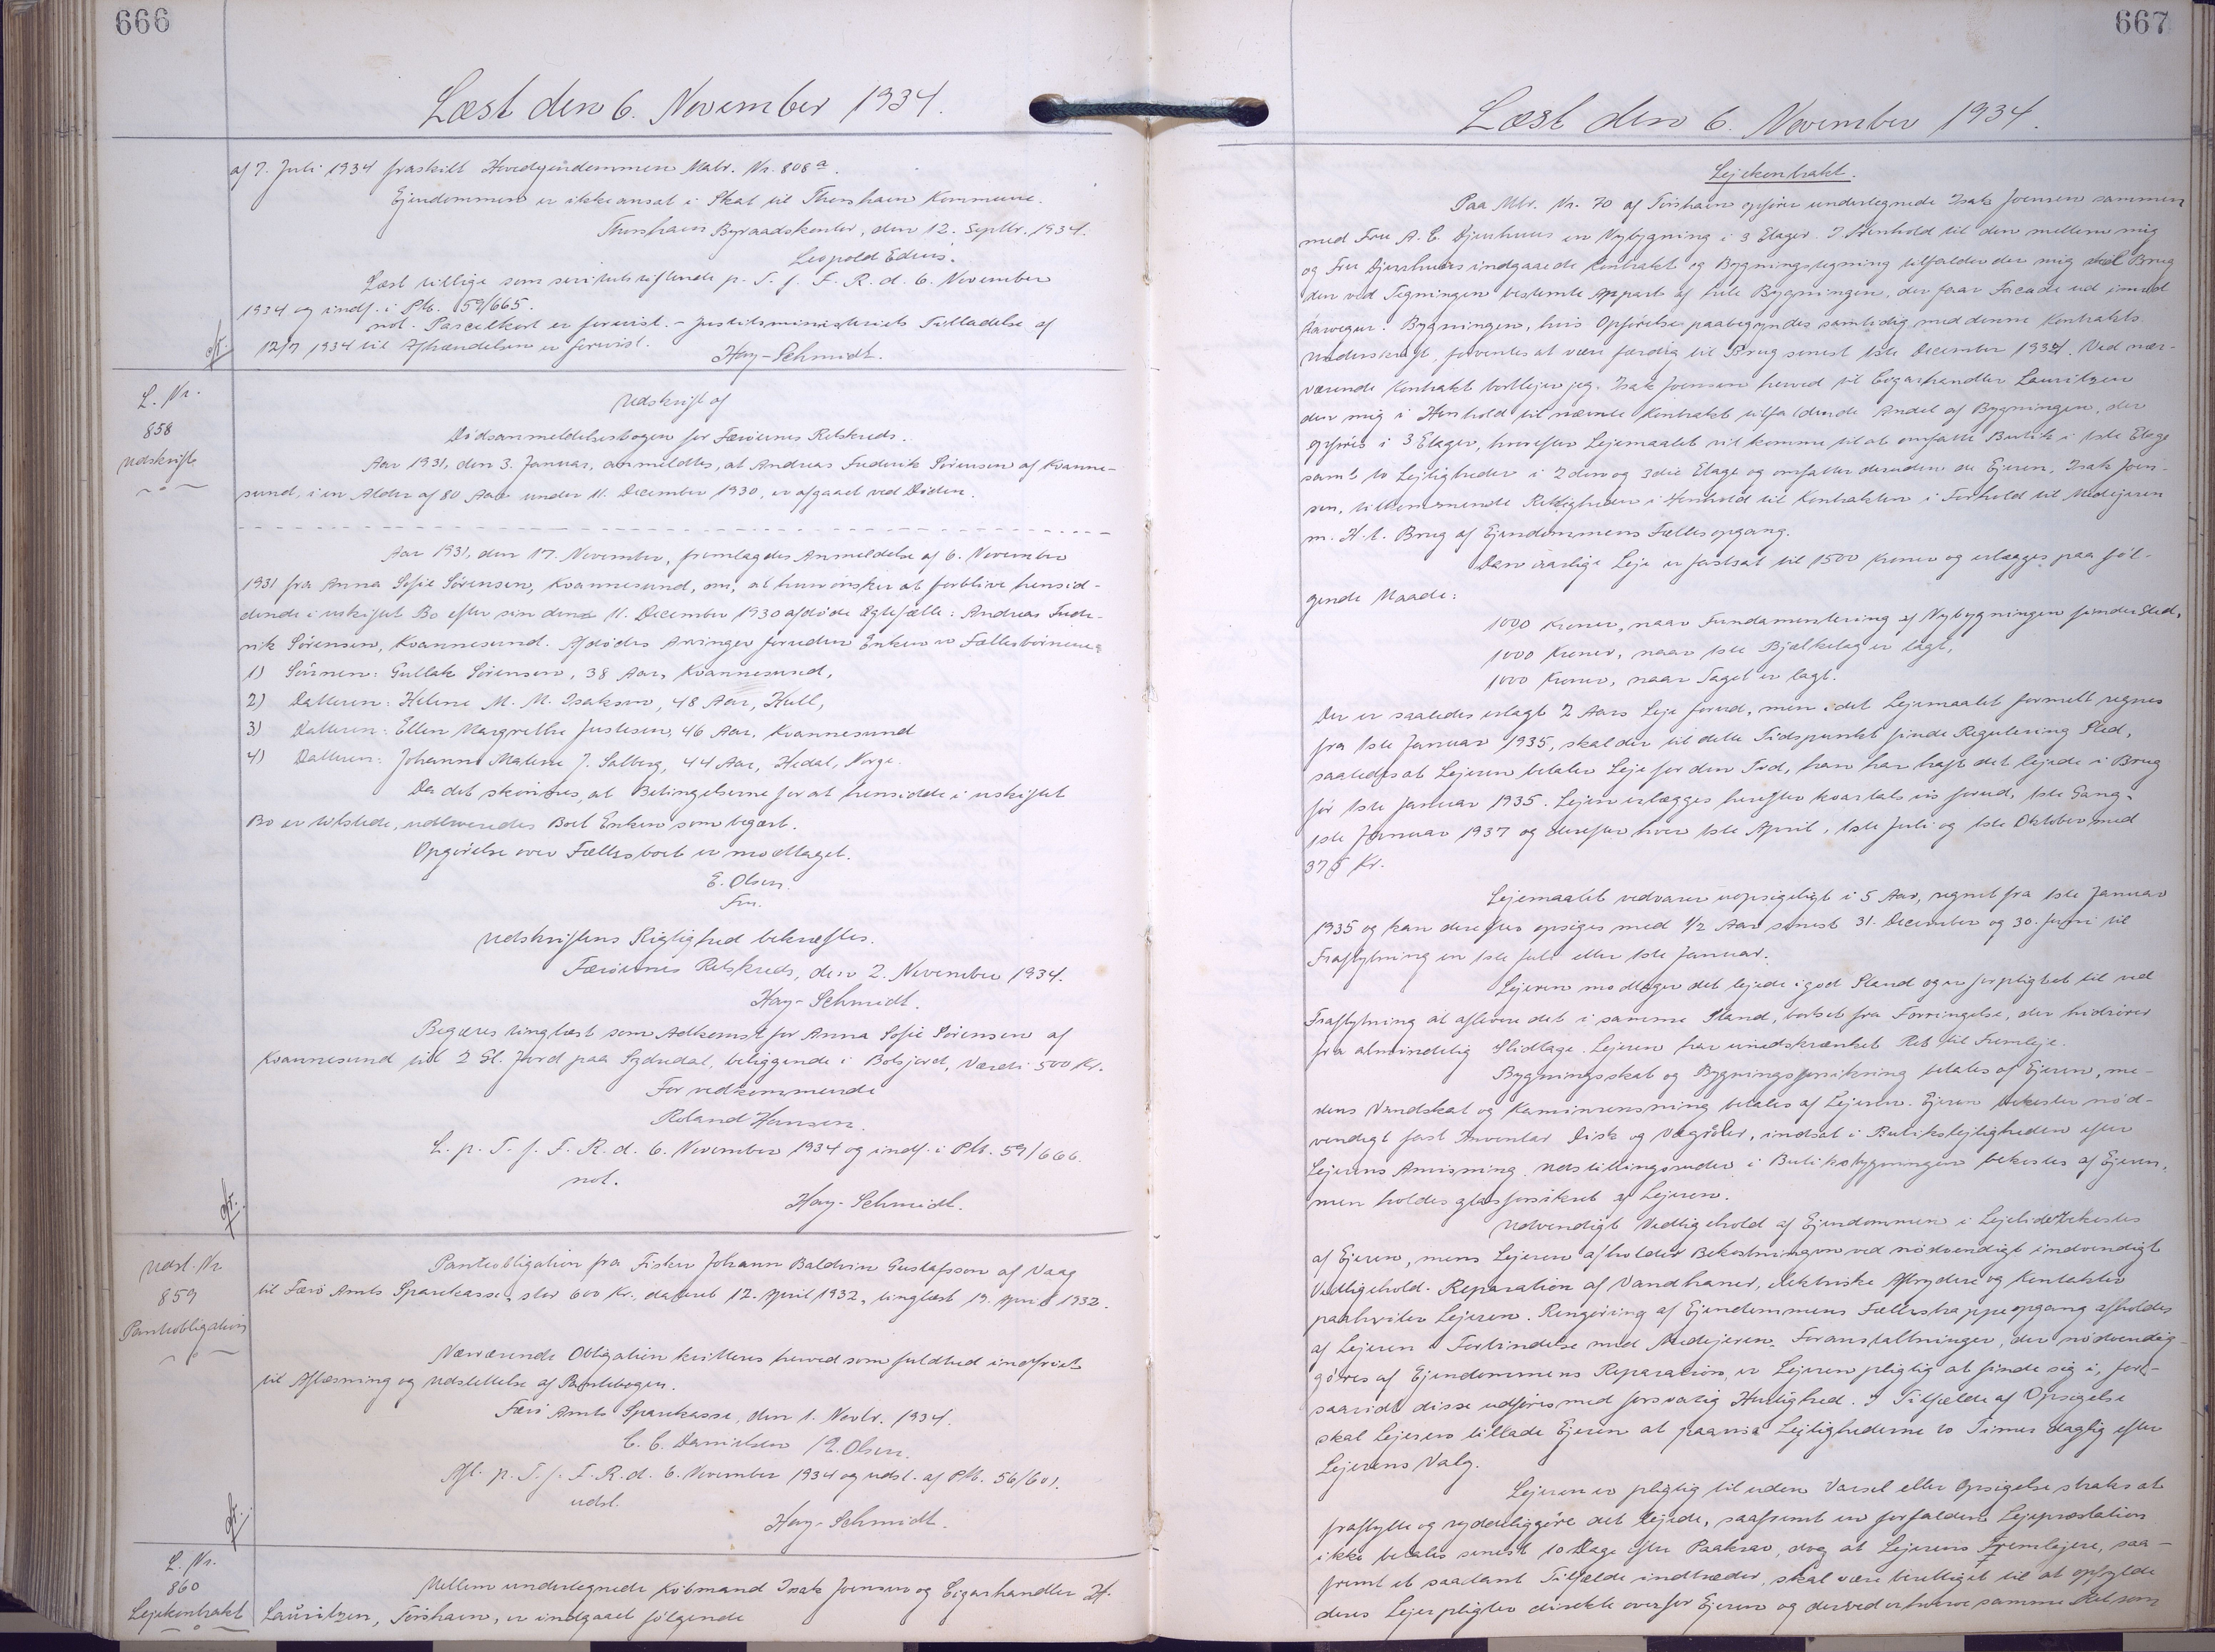 666
Læst den 6. November 1934.
af 7. Juli 1934 fraskilt Hovedejendommen Matr. Nr. 808 a.
Ejendommen er ikke ansat i Skat til Thorshavn Kommune.
Thorshavn Byraadskontor, den 12. Septbr. 1934.
Leopold
Læst tillige som servitutstiftende p. T. f. F. R. d. 6. November
1934 og indf. i Ptb. 59/665.
not. Parcelkort er forevist. - Justitsministeriets Tilladelse af
12/7 1934 til Afhændelsen er forevist.
Hay-Schmidt.
L. Nr.
858
Udskrift
Udskrift af
Dødsanmeldelsesbogen for Færøernes Retskreds.
Aar 1931, den 3. Januar, anmeldtes, at Andreas Frederik Sørensen af Kvanne-
sund, i en Alder af 80 Aar under 11. December 1930, er afgaaet ved Døden.
Aar 1931, den 17. November, fremlagdes Anmeldelse af 6. November
1931 fra Anna Sofie Sørensen, Kvannesund, om, at hun ønsker at forblive hensid-
dende i uskiftet Bo efter sin den 11. December 1930 afdøde Ægtefælle: Andreas Frede-
rik Sørensen, Kvannesund. Afdødes Arvinger foruden Enken er Fællesbørnene:
1) Sønnen: Gullak Sørensen, 38 Aar, Kvannesund,
2) Datteren: Helene M. M. Isaksen, 48 Aar, Hull,
3) Datteren: Ellen Margrethe Justesen, 46 Aar, Kvannesund
4) Datteren: Johanne Malene J. Salberg, 44 Aar, Hedal, Norge.
Da det skønnes, at Betingelserne for at hensidde i uskiftet
Bo er tilstede, udleveredes Boet Enken som begært.
Opgørelse over Fællesboet er modtaget.
E. Olsen.
Fm.
Udskriftens Rigtighed bekræftes.
Færøernes Retskreds, den 2. November 1934.
Hay-Schmidt.
Begæres tinglæst som Adkomst for Anna Sofie Sørensen af
Kvannesund til 2 Gl. Jord paa Sydredal, beliggende i Bolsjord, Værdi 500 Kr.
For vedkommende
Roland Hansen.
L. p. T. f. F. R. d. 6. November 1934 og indf. i Ptb. 59/666.
not.
Hay-Schmidt.
Udsl. Nr.
859
Panteobligation
Panteobligation fra Fisker Johann Baldvin Gustafsson af Vaag
til Færø Amts Sparekasse, stor 600 Kr., dateret 12. April 1932, tinglæst 19. April 1932.
Nærværende Obligation kvitteres herved som fuldtud indfriet
til Aflæsning og Udslettelse af Pantebogen.
Færø Amts Sparekasse, den 1. Novbr. 1934.
C. C. Danielsen / E. Olsen.
Afl. p. T. f. F. R. d. 6. November 1934 og udsl. af Ptb. 56/601.
udsl.
Hay-Schmidt.
L. Nr.
860
Lejekontrakt
Mellem undertegnede Købmand Isak Joensen og Cigarhandler H.
Lauritzen, Tórshavn, er indgaaet følgende
667
Læst den 6. November 1934.
Lejekontrakt.
Paa Mtr. Nr. 70 af Tórshavn opfører undertegnede Isak Joensen sammen
med Fru A. C. Djurhuus en Nybygning i 3 Etager. I Henhold til den mellem mig
og Fru Djurhuus indgaaede Kontrakt og Bygningstegning tilfalder der mig til Brug
den ved Tegningen bestemte Appart af hele Bygningen, der faar Facade ud imod
Aarvegur. Bygningen, hvis Opførelse paabegyndes samtidig med denne Kontrakts
Underskrift, forventes at være færdig til Brug senest 1ste December 1934. Ved nær-
værende Kontrakt bortlejer jeg, Isak Joensen herved til Cigarhandler Lauritzen
den mig i Henhold til nævnte Kontrakt tilfaldende Andel af Bygningen, der
opføres i 3 Etager, hvorefter Lejemaalet vil komme til at omfatte Butik i 1ste Etage
samt to Lejligheder i 2den og 3die Etage og omfatter desuden de Ejeren, Isak Joen-
sen, tilkommende Rettigheder i Henhold til Kontrakten i Forhold til Medejeren
m. H. t. Brug af Ejendommens Fællesopgang.
Den aarlige Leje er fastsat til 1500 Kroner og erlægges paa føl-
gende Maade:
1000 Kroner, naar Fundamentering af Nybygningen finder Sted,
1000 Kroner, naar 1ste Bjælkelag er lagt,
1000 Kroner, naar Taget er lagt.
Der er saaledes erlagt 2 Aars Leje forud, men idet Lejemaalet formelt regnes
fra 1ste Januar 1935, skal der til dette Tidspunkt finde Regulering Sted,
saaledes at Lejeren betaler Leje for den Tid, han har haft det lejede i Brug
før 1ste Januar 1935. Lejen erlægges herefter kvartalsvis forud, 1ste Gang
1ste Januar 1937 og derefter hver 1ste April, 1ste Juli og 1ste Oktober med
375 Kr.
Lejemaalet vedvarer uopsigeligt i 5 Aar, regnet fra 1ste Januar
1935 og kan derefter opsiges med 1/2 Aar senest 31. December og 30. Juni til
Fraflytning en 1ste Juli eller 1ste Januar.
Lejeren modtager det lejede i god Stand og er forpligtet til ved
Fraflytning at aflevere det i samme Stand, bortset fra Forringelse, der hidrører
fra almindelig Slidtage. Lejeren har uindskrænket Ret til Fremleje.
Bygningsskat og Bygningsforsikring betales af Ejeren, me-
dens Vandskat og Kaminrensning betales af Lejeren. Ejeren bekoster nød-
vendigt fast Inventar Disk og Vægreoler, indsat i Butikslejligheden efter
Lejerens Anvisning. Udstillingsruder i Butiksbygningen bekostes af Ejeren,
men holdes glasforsikret af Lejeren.
Udvendigt Vedligehold af Ejendommen i Lejetiden bekostes
af Ejeren, mens Lejeren afholder Bekostningen ved nødvendigt indvendigt
Vedligehold. Reparation af Vandhaner, elektriske Afbrydere og Kontakter
paahviler Lejeren. Rengøring af Ejendommens Fællestrappeopgang afholdes
af Lejeren i Forbindelse med Medejeren. Foranstaltninger, der nødvendig-
gøres af Ejendommens Reparation, er Lejeren pligtig at finde sig i, for-
saavidt disse udføres med forsvarlig Hurtighed. I Tilfælde af Opsigelse
skal Lejeren tillade Ejeren at forevise Lejlighederne to Timer daglig efter
Lejerens Valg.
Lejeren er pligtig til uden Varsel eller Opsigelse straks at
fraflytte og ryddeliggøre det lejede, saafremt en forfalden Lejepræstation
ikke betales senest 10 Dage efter Paakrav, dog at Lejerens Fremlejere, saa-
fremt et saadant Tilfælde indtræder, skal være berettiget til at opfylde
deres Lejerpligter direkte overfor Ejeren og derved erhverve samme Ret som